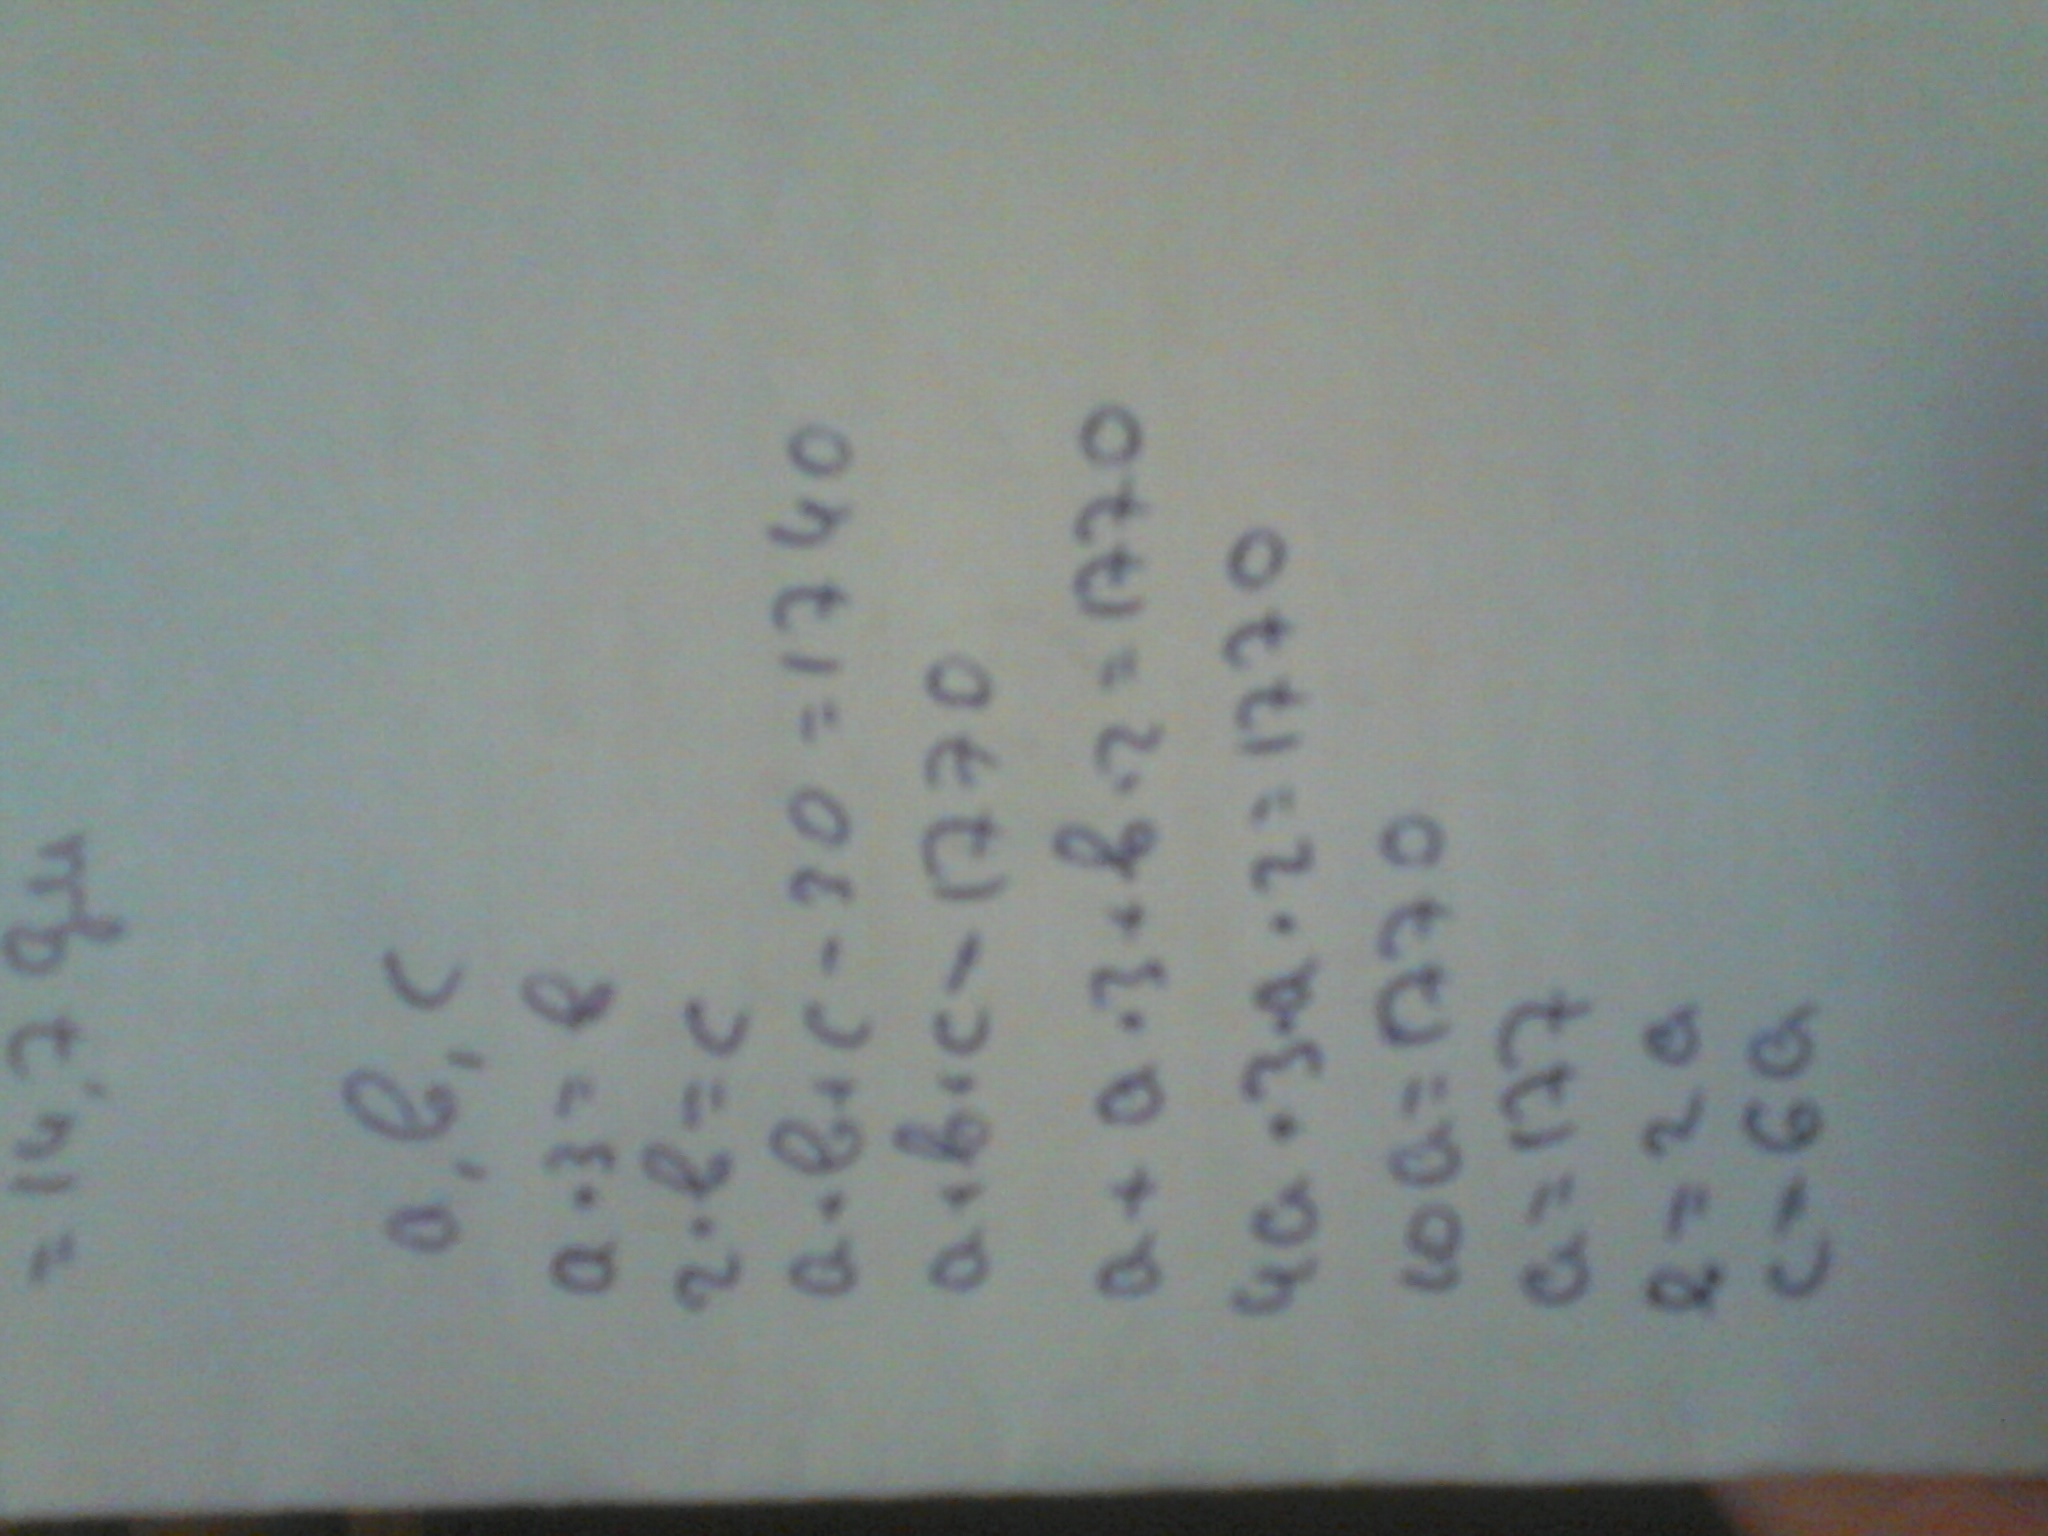 = 14,7 дм
a, b, c
a · 3 = b
2 · b = c
a + b + c - 30 = 1740
a + b + c - 1770
a + a · 3 + b · 2 = 1770
4a · 3 · a · 2 = 1770
10a = 1770
a = 177
b = 2a
c - 6a